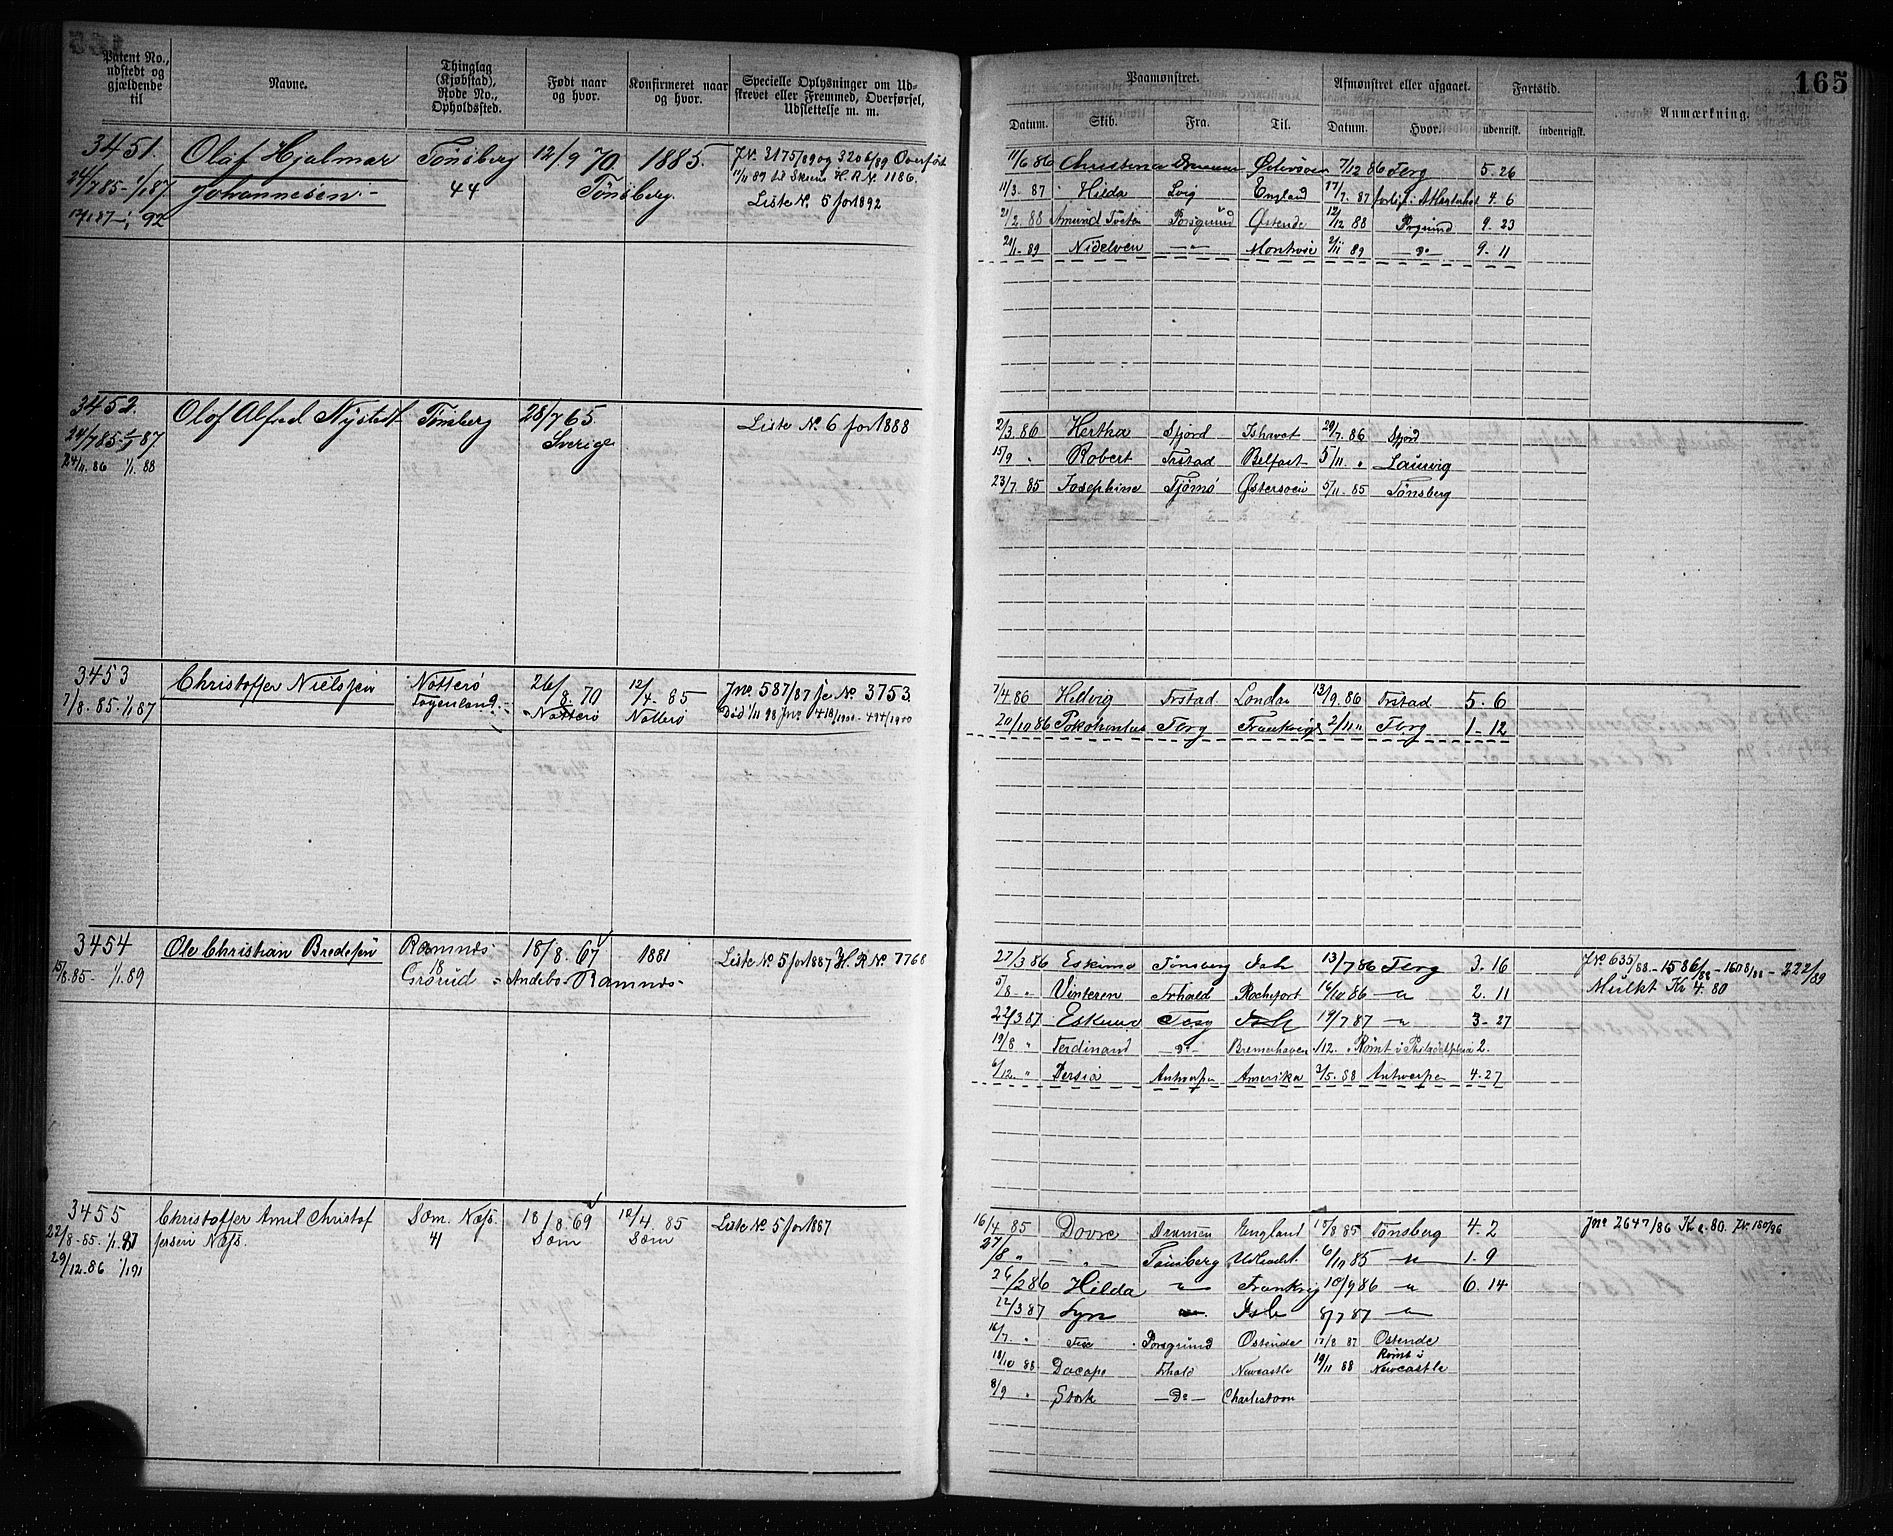 165
Patent No., udstedt og gjældende til
Navne.
Thinglag (Kjøbstad), Rode No., Opholdssted.
Født naar og hvor.
Konfirmeret naar og hvor.
Specielle Oplysninger om Udskrevet eller Fremmed, Overførsel, Udslettelse m. m.
Paamønstret.
Datum. Skib. Fra. Til.
Afmønstret eller afgaaet.
Datum. Hvor.
Fartstid.
udenrisk. indenrigsk.
Anmærkning.
3451 Olaf Hjalmar Tönsberg 12/9 70 1885. J.N. 3175/89 og 3206/89 Overført
24/7 85 - 1/1 87 Johannesen 44 Tönsberg 11/11 89 til Skiens H.R.N. 1186.
92 Liste N. 5 for 1892
11/6 86 Christina Østersøen 7/12 86 Tbrg 5. 26
11/3. 87 Hilda Lvig England 17/7. 87 4. 6
21/2. 88 Amund Tveten Porsgrund Østende 12/12 88 Prgrund 9. 23
Nidelven -"- 2/11 89 -do- 9-11
3452 Olof Alfred Nystedt Tönsberg 28/7 65 Liste N. 6 for 1888
24/7 85 - 1/1 87 Sverige
24/11. 86 1/1. 88
2/3. 86 Hertha Sfjord Ishavet 29/7. 86 Sfjord
15/9 " Robert Frstad Belfast 5/11. " Laurvig
23/7. 85 Josephine Tjömö Østersöen 5/11. 85 Tönsberg
3453 Christoffer Nielsen Nötterö 26/8 70 12/4 85 Jno. 587/87 jc No. 3753
7/8. 85. 1/1 87 Nötterö Nötterö Död 1/11 98 Jno 418/1900 - 494/1900
7/4 86 Helvig Frstad London 13/9. 86 Frstad 5. 6
20/10 86 Pokohontas Tbrg Frankrig 2/11 " Tbrg 1-12
3454 Ole Christian Bredesen Ramnæs 18/8. 67 1881 Liste No. 5 for 1887 H.R.No. 7768
15/8. 85 - 1/1. 89 18 Andebo Ramnæs
27/3 86 Eskimo Tønsberg Ish 13/7 86 Tbrg 3. 16 JNo 635/88 - 1586/88 - 1608/88 - 222/89
5/8 " Vinteren Frhald Rochefort 16/10 86 -"- 2. 11 Mulkt Kr 4. 80
22/3 87 Eskimo Tbrg Ish 19/7 87 -"- 3-27
19/8 " Ferdinand -do- Bremerhaven /12. " Römt i Philadelphia 2.
6/12. " Persia Antwerpen Amerika 3/5. 88 Antwerpen 4. 27
3455 Christoffer Amil Christof Sem. Næs 18/8. 69 12/4. 85 Liste No. 5 for 1887
22/8 - 85 - 1/1. 87 fersen Næs. 41 Sem Sem
29/12. 86 1/1 91
16/4. 85 Dovre Drammen England 15/8 85 Tönsberg 4. 2 Jno 2647/86 Kr 2. 80
27/8 " " Tönsberg 6/10 85 -"- 1. 9
26/2 86 Hilda -"- Frankrig 10/9 86 -"- 6. 14
12/3 87 Lyn -"- Ish 8/7 87 -"-
16/7. " Porsgrund Ostende 17/8 87 Ostende
18/10 88 Dacape Frhald Newcastle 19/11 88 Römt i Newcastle
8/9 " Stærk -Do- Charlestown